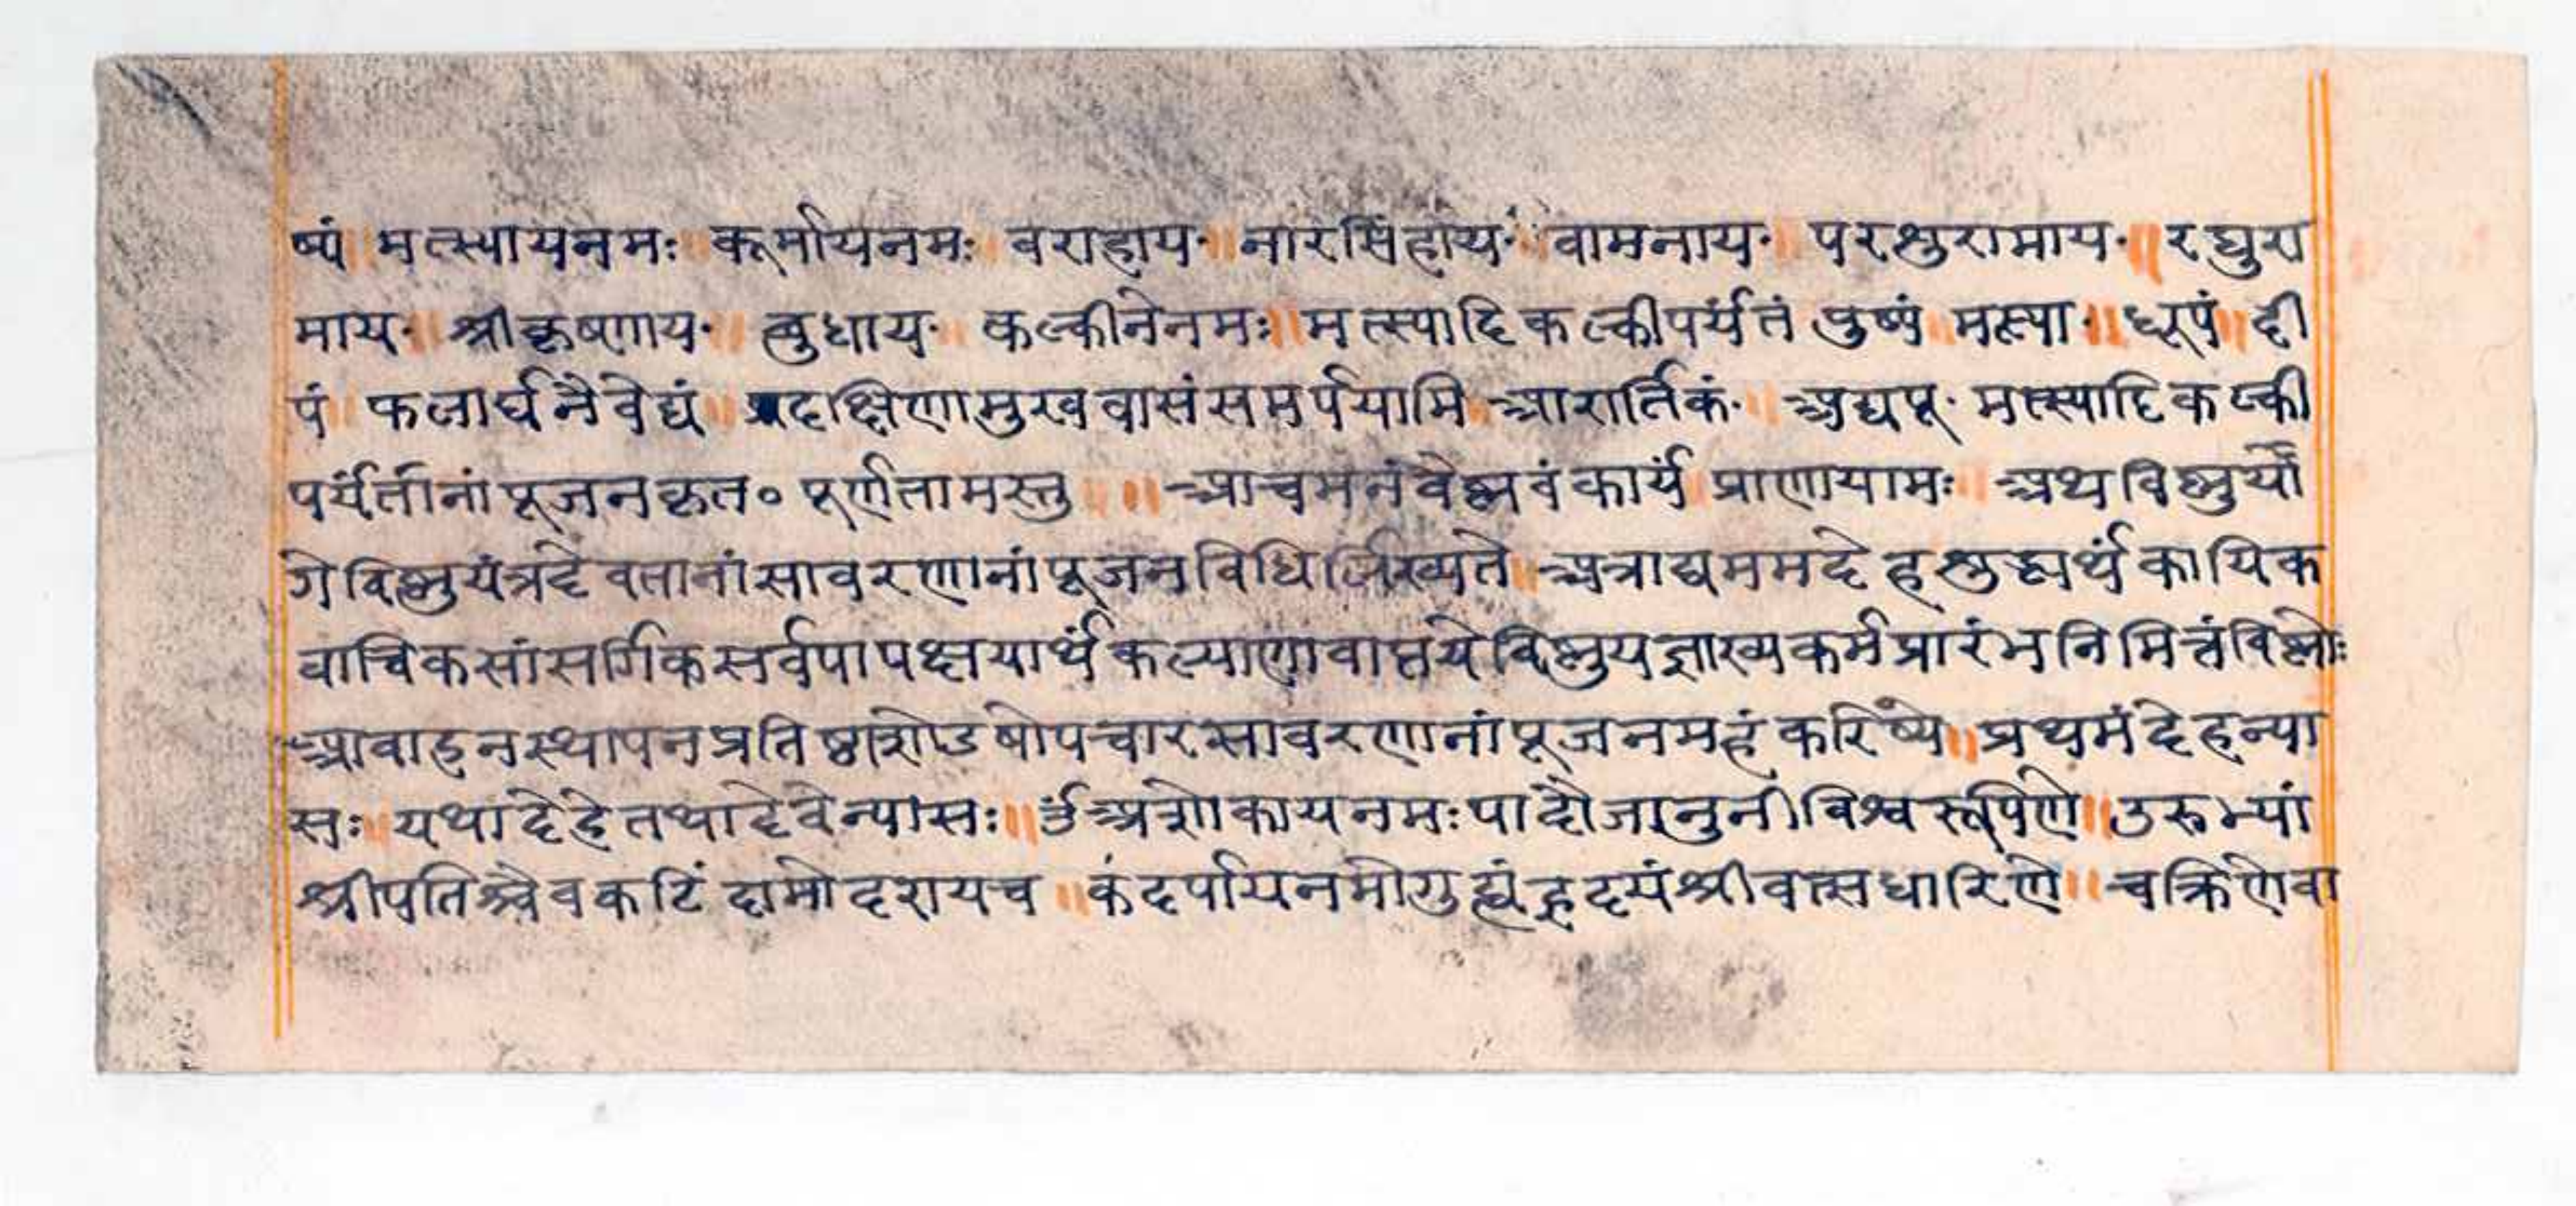 ष्पं ॥ मत्स्यायनमः ॥ कूर्मायनमः ॥ वराहाय॰ ॥ नारसिंहाय॰ ॥ वामनाय॰ ॥ परशुरामाय॰ ॥ रघुरा
माय॰ ॥ श्रीकृष्णाय॰ ॥ बुधाय॰ ॥ कल्कीनेनमः ॥ मत्स्यादिकल्कीपर्यंतं पुष्पं ॥ मत्स्या॰ ॥ धूपं ॥ दी
पं ॥ फलार्घनैवेद्यं ॥ प्रदक्षिणामुखवासंसमर्पयामि ॥ आरार्तिकं॰ ॥ अद्यपू॰ मत्स्यादिकल्की
पर्यंतानांपूजनकृत॰ पूर्णतामस्तु ॥ ॥ आचमनंवैष्णवंकार्यं ॥ प्राणायामः ॥ अथविष्णुर्यो
गेविष्णुयंत्रदेवतानांसावरणानांपूजनविधिर्लिख्यते ॥ अत्राद्यममदेहशुद्ध्यर्थंकायिक
वाचिकसांसर्गिकसर्वपापक्षयार्थंकल्याणावाप्तयेविष्णुयज्ञाख्यकर्मप्रारंभनिमित्तंविष्णोः
आवाहनस्थापनप्रतिष्ठाशोडषोपचारसावरणानांपूजनमहंकरिष्ये ॥ प्रथमंदेहन्या
सः ॥ यथादेहेतथादेवेन्यासः ॥ ॐअशोकायनमःपादौजानुनीविश्वरूपिणे ॥ उरुभ्यां
श्रीपतिश्चैवकटिं दामोदरायच ॥ कंदर्पायनमोगुह्यंहृदयंश्रीवत्सधारिणे ॥ चक्रिणेवा